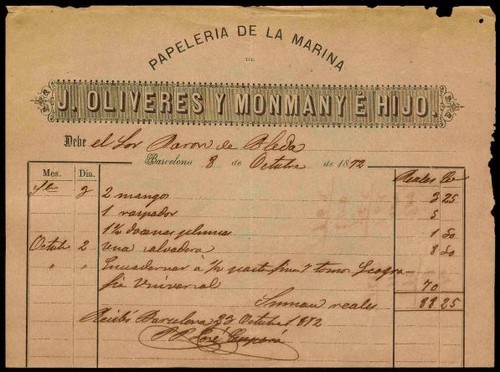 PAPELERIA DE LA MARINA
DE
J. OLIVERES Y MONMANY É HIJO
Debe el Sor Baron de Bleda
Barcelona 8 de Octubre de 1872
Mes. Dia. Reales Cs
2 2 mangos 3 25
1 raspador 5
1½ docenas plumas 1 50
Octubre 2 Una salvadera 8 50
" " Encuadernar á ½ pasta 7 tomos Geogra-
fia Universal 70
Suman reales 88 25
Recibí Barcelona 23 Octubre 1872
P.P. José